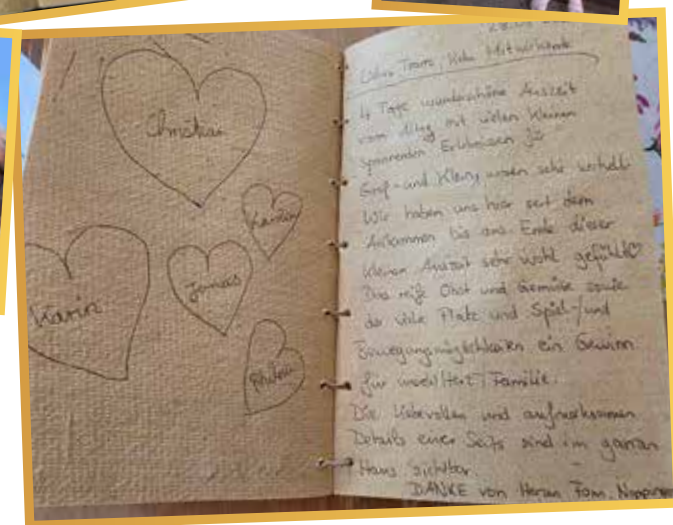 Christian
Karin
Jonas
4 Tage wunderschöne Auszeit
vom Alltag mit vielen kleinen
spannenden Erlebnissen für
Groß- und Klein, waren sehr
Wir haben uns hier seit dem
Ankommen bis ans Ende dieser
kleinen Auszeit sehr wohl gefühlt
Das reife Obst und Gemüse sowie
der viele Platz und Spiel-/und
Bewegungsmöglichkeiten ein Gewinn
für jede Familie.
Die liebevollen und aufmerksamen
Details eurer Seits sind im ganzen
Haus sichtbar.
DANKE von Herzen Fam.